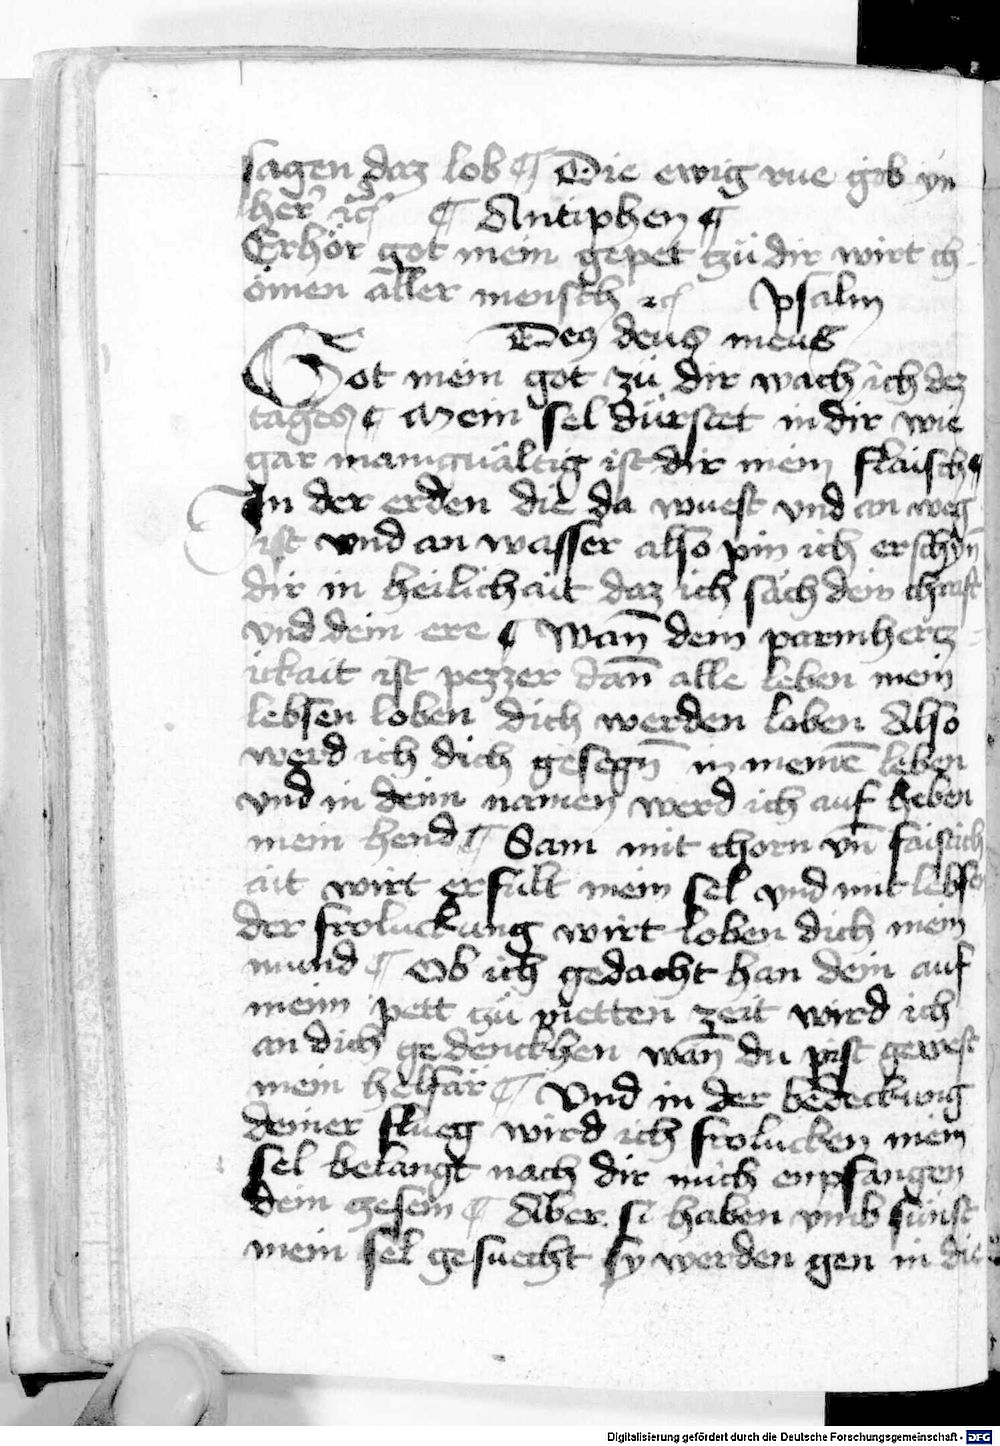 sagen daz lob ¶ Die ewig rue gib yn
her ꝛc ¶ Antiphen ¶
Erhör got mein gepet zü dir wirt ch-
ömen aller mensch ꝛc psalm
Deꝰ deus meus
Got mein got zü dir wach ich dez
tages ¶ Mein sel dürstet in dir wie
gar manigualtig ist dir mein flaisch ¶
In der erden die da wuest vnd an weg
ist vnd an wasser also pin ich erschyn̄
dir in heilichait daz ich säch dein chraft
vnd dein ere ¶ Wan̄ dein parmhertz-
ickait ist pezzer dan̄ alle leben mein
lebsen loben dich werden loben Also
werd ich dich gesegn̄ in meinē leben
vnd in deim namen werd ich auf heben
mein hend ¶ Sam mit chorn vn̄ faistich
ait wirt erfült mein sel vnd mit lebsen
der froluckung wirt loben dich mein
mund ¶ Ob ich gedacht han dein auf
meim pett zü metten zeit wird ich
an dich gedenckhen wan̄ du pist gewest
mein helfär ¶ Vnd in der bedeckung
deiner flueg wird ich frolucken mein
sel belangt nach dir mich enpfangen
dein zesein ¶ Aber si haben vmb sünst
mein sel gesuecht sy werden gen in die
Digitalisierung gefördert durch die Deutsche Forschungsgemeinschaft - DFG